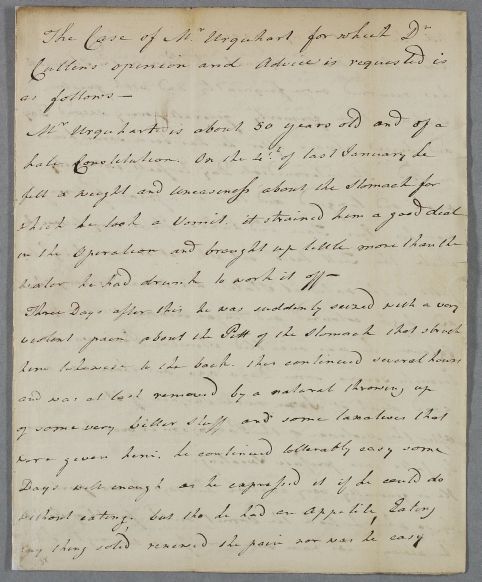 The Case of Mr Urquhart for which Dr
Cullens opinion and Advice is requested is
as follows —
Mr Urquhart is about 50 years old and of a
hale Constitution. On the 4th of last January he
felt a weight and Uneasiness about the Stomach for
which he took a Vomit, it strained him a good deal
in the Operation and brought up little more than the
water he had drunk to work it off —
Three Days after this he was suddenly seized with a very
violent pain about the Pitt of the Stomach that struck
him likewise to the back. this continued several hours
and was at last removed by a natural throwing up
of some very bitter Stuff and some laxatives that
were given him. he continued tollerably easy some
Days well enough as he expressed it if he could do
without eating. but tho he had an Appetite, Eating
any thing solid renewed the pain nor was he easy